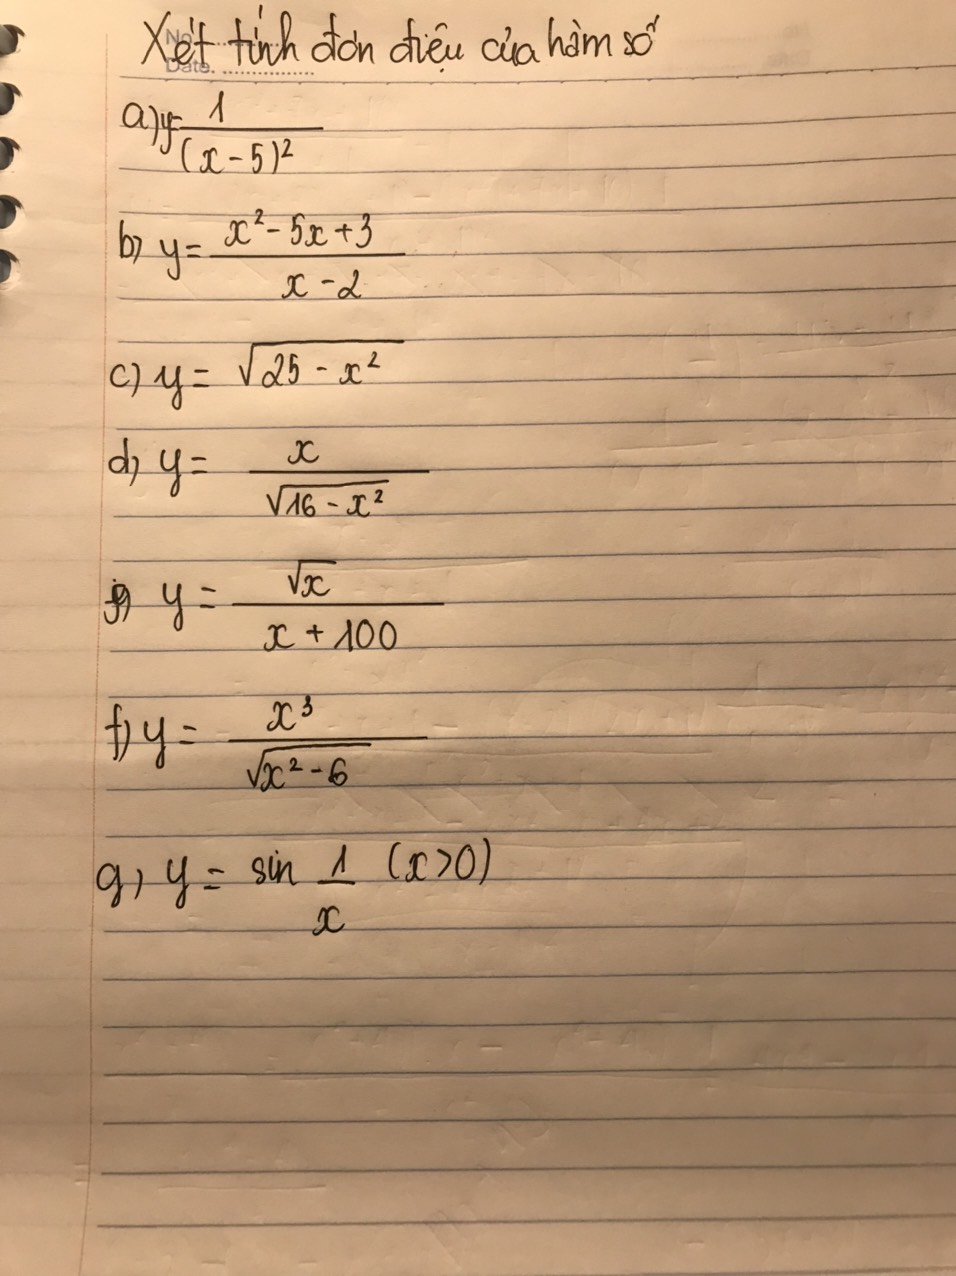 Xét tính đơn điệu của hàm số
No.
Date.
a) y = 1/(x-5)²
b) y = (x² - 5x + 3)/(x - 2)
c) y = √(25 - x²)
d) y = x/√(16 - x²)
y = √x/(x + 100)
f) y = x³/√(x² - 6)
g) y = sin 1/x (x>0)